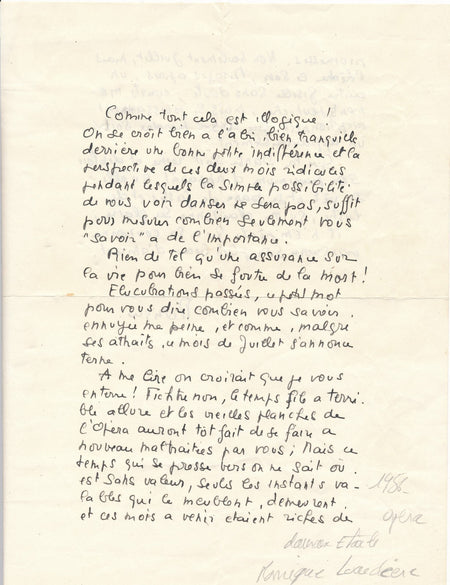 Comme tout cela est illogique !
On se croit bien a l'abri, bien tranquille
derrière une bonne petite indifférence et la
perspective de ces deux mois ridicules
pendant lesquels la simple possibilité
de vous voir danser ne sera pas, suffit
pour mesurer combien seulement vous
"savoir" a de l'importance.
Rien de tel qu'une assurance sur
la vie pour bien se foutre de la mort !
Elucubrations passées, un petit mot
pour vous dire combien vous savoir
ennuyée me peine, et comme, malgré
ses attraits, le mois de Juillet s'annonce
terne.
A me lire on croirait que je vous
enterre ! Fichtre non, le temps file a terri-
ble allure et les vieilles planches de
l'Opera auront tôt fait de se faire a
nouveau maltraitées par vous ; Mais ce
temps qui se presse vers on ne sait où
est sans valeur, seuls les instants va-
lables qui le meublent, demeurent
et ces mois a venir etaient riches de
Opera
danseuse Etoile
Monique